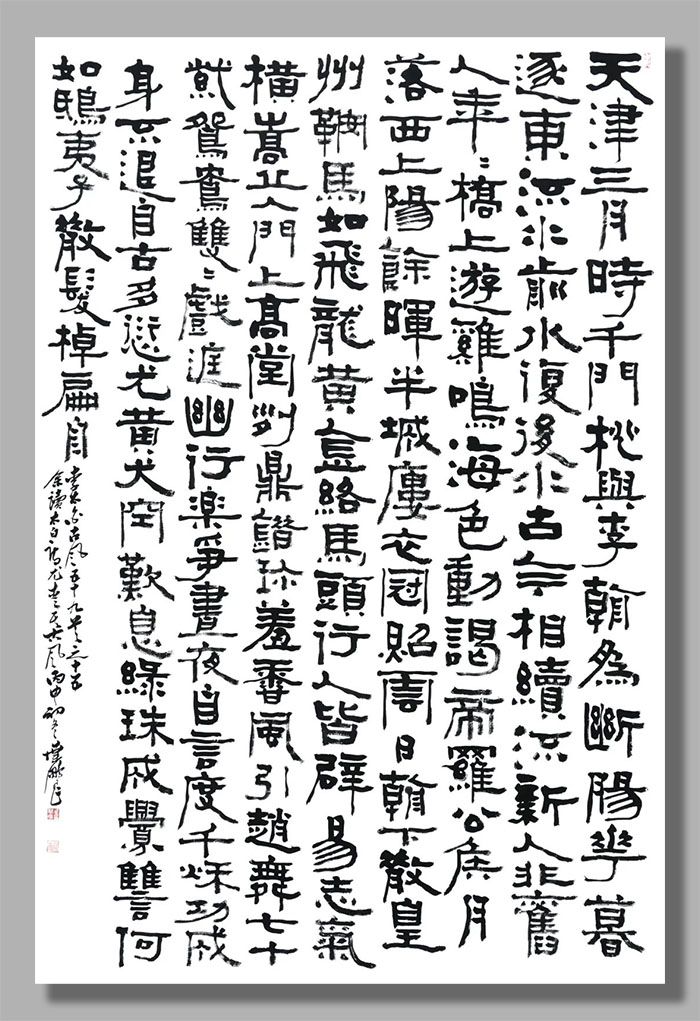 天津三月時千門桃與李朝為斷腸華暮
逐東流水前水復後水古今相續流新人非舊
人年々橋上遊雞鳴海色動謁帝羅公侯月
落西上陽餘暉半城樓衣冠照雲日朝下散皇
州鞍馬如飛龍黃金絡馬頭行人皆辟易志氣
橫嵩丘入門上高堂列鼎錯珍羞香風引趙舞七十
紫鴛鴦雙々戲庭幽行樂爭晝夜自言度千秋功成
身不退自古多愆尤黃犬空歎息綠珠成釁讎何
如鴟夷子散髮棹扁舟
李太白古風五十九首之十五
余讀太白詩尤喜其古風丙申初冬